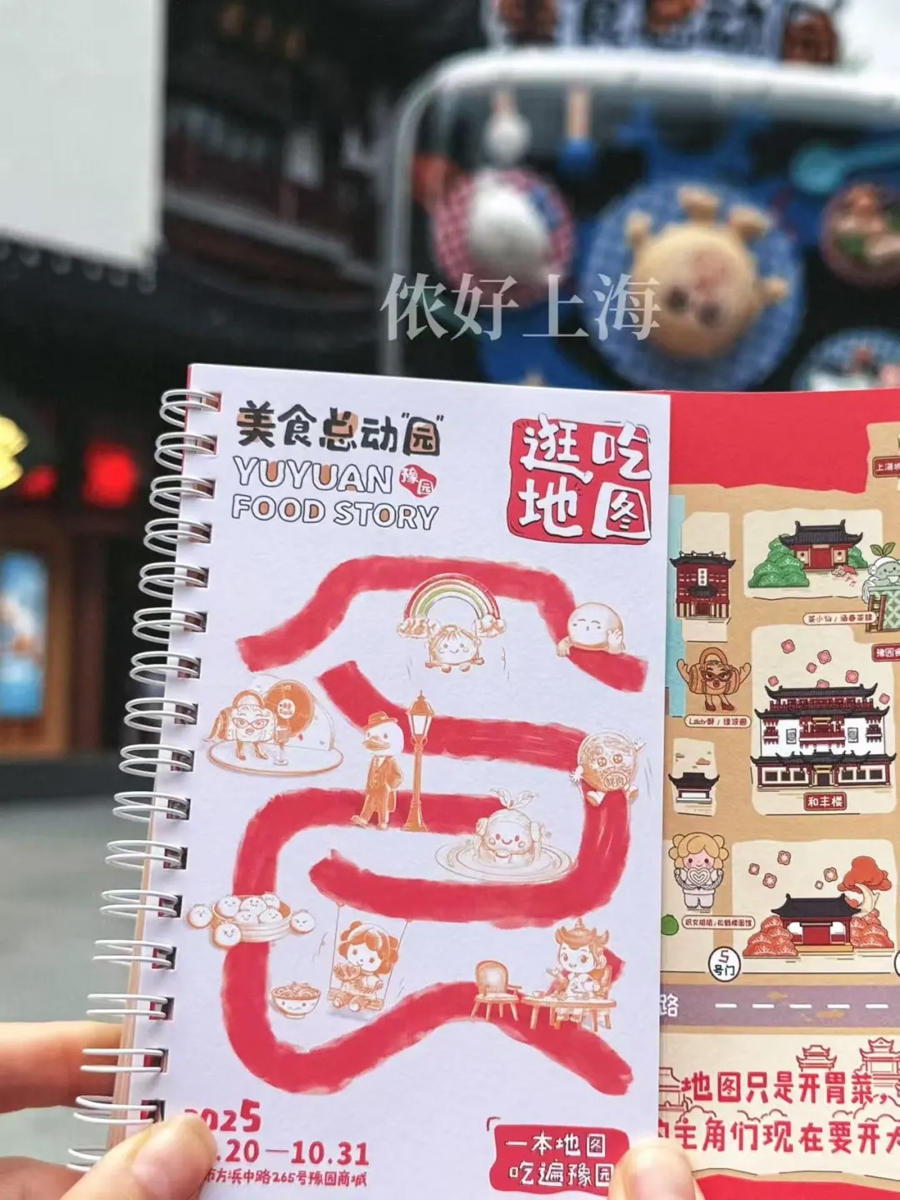 侬好上海
美食总动"园"
YUYUAN 豫园
FOOD STORY
逛吃
地图
鲜肉
2025
.20—10.31
市方浜中路265号豫园商城
一本地图
吃遍豫园
上海
茶小仙/涵春茶馆
豫园
Lady酥/绿波廊
和丰楼
松鹤楼面馆
5
号门
路
地图只是开胃菜，
主角们现在要开